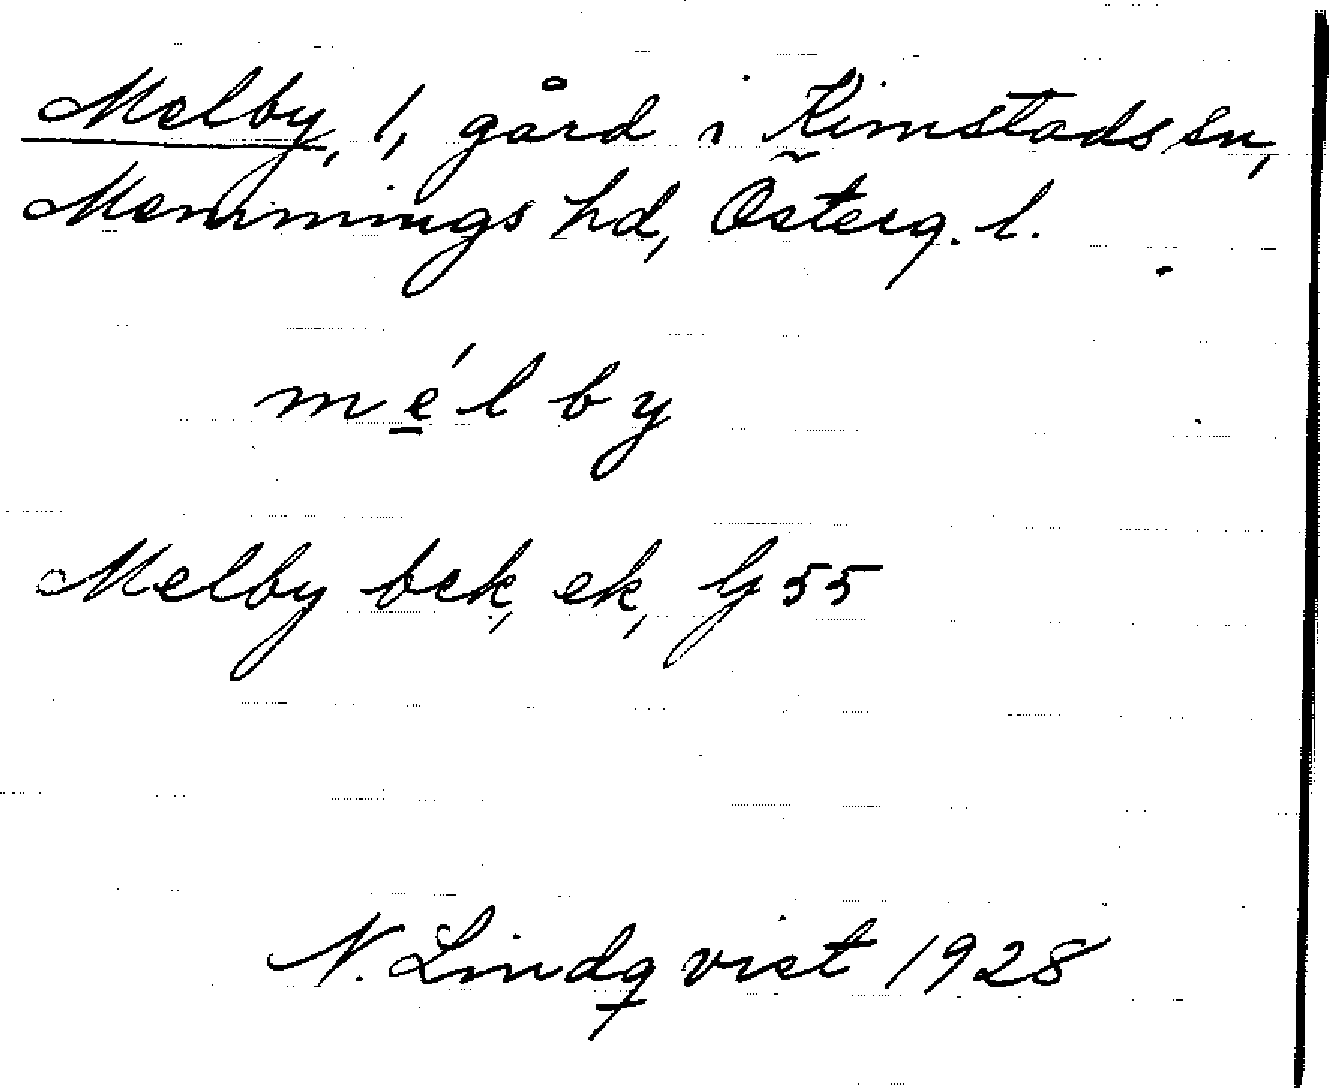 Melby, 1, gård i Kimstads sn,
Memmings hd, Österg. l.
mélby
Melby bek, ek, G 55
N. Lindqvist 1928